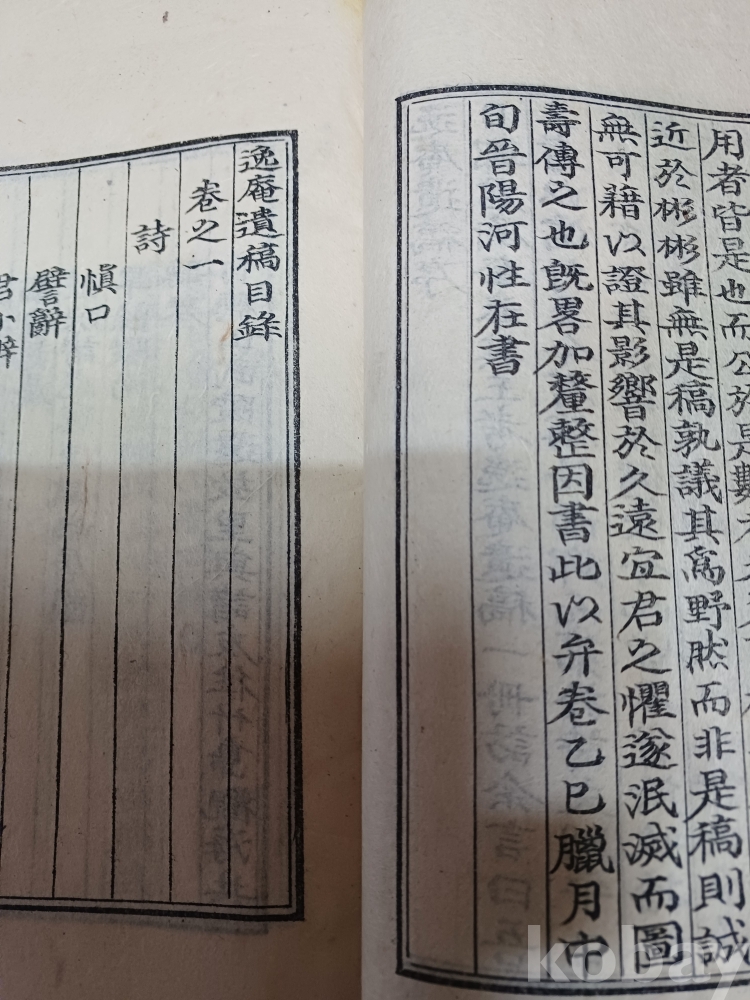 用者皆是也而公於是
近於彬彬雖無是稿孰議其爲野然而非是稿則誠
無可藉以證其影響於久遠宜君之懼遂泯滅而圖
壽傳之也旣畧加釐整因書此以弁卷乙巳臘月中
旬晉陽河性在書
逸庵遺稿目錄
卷之一
詩
愼口
譬辭
kobay